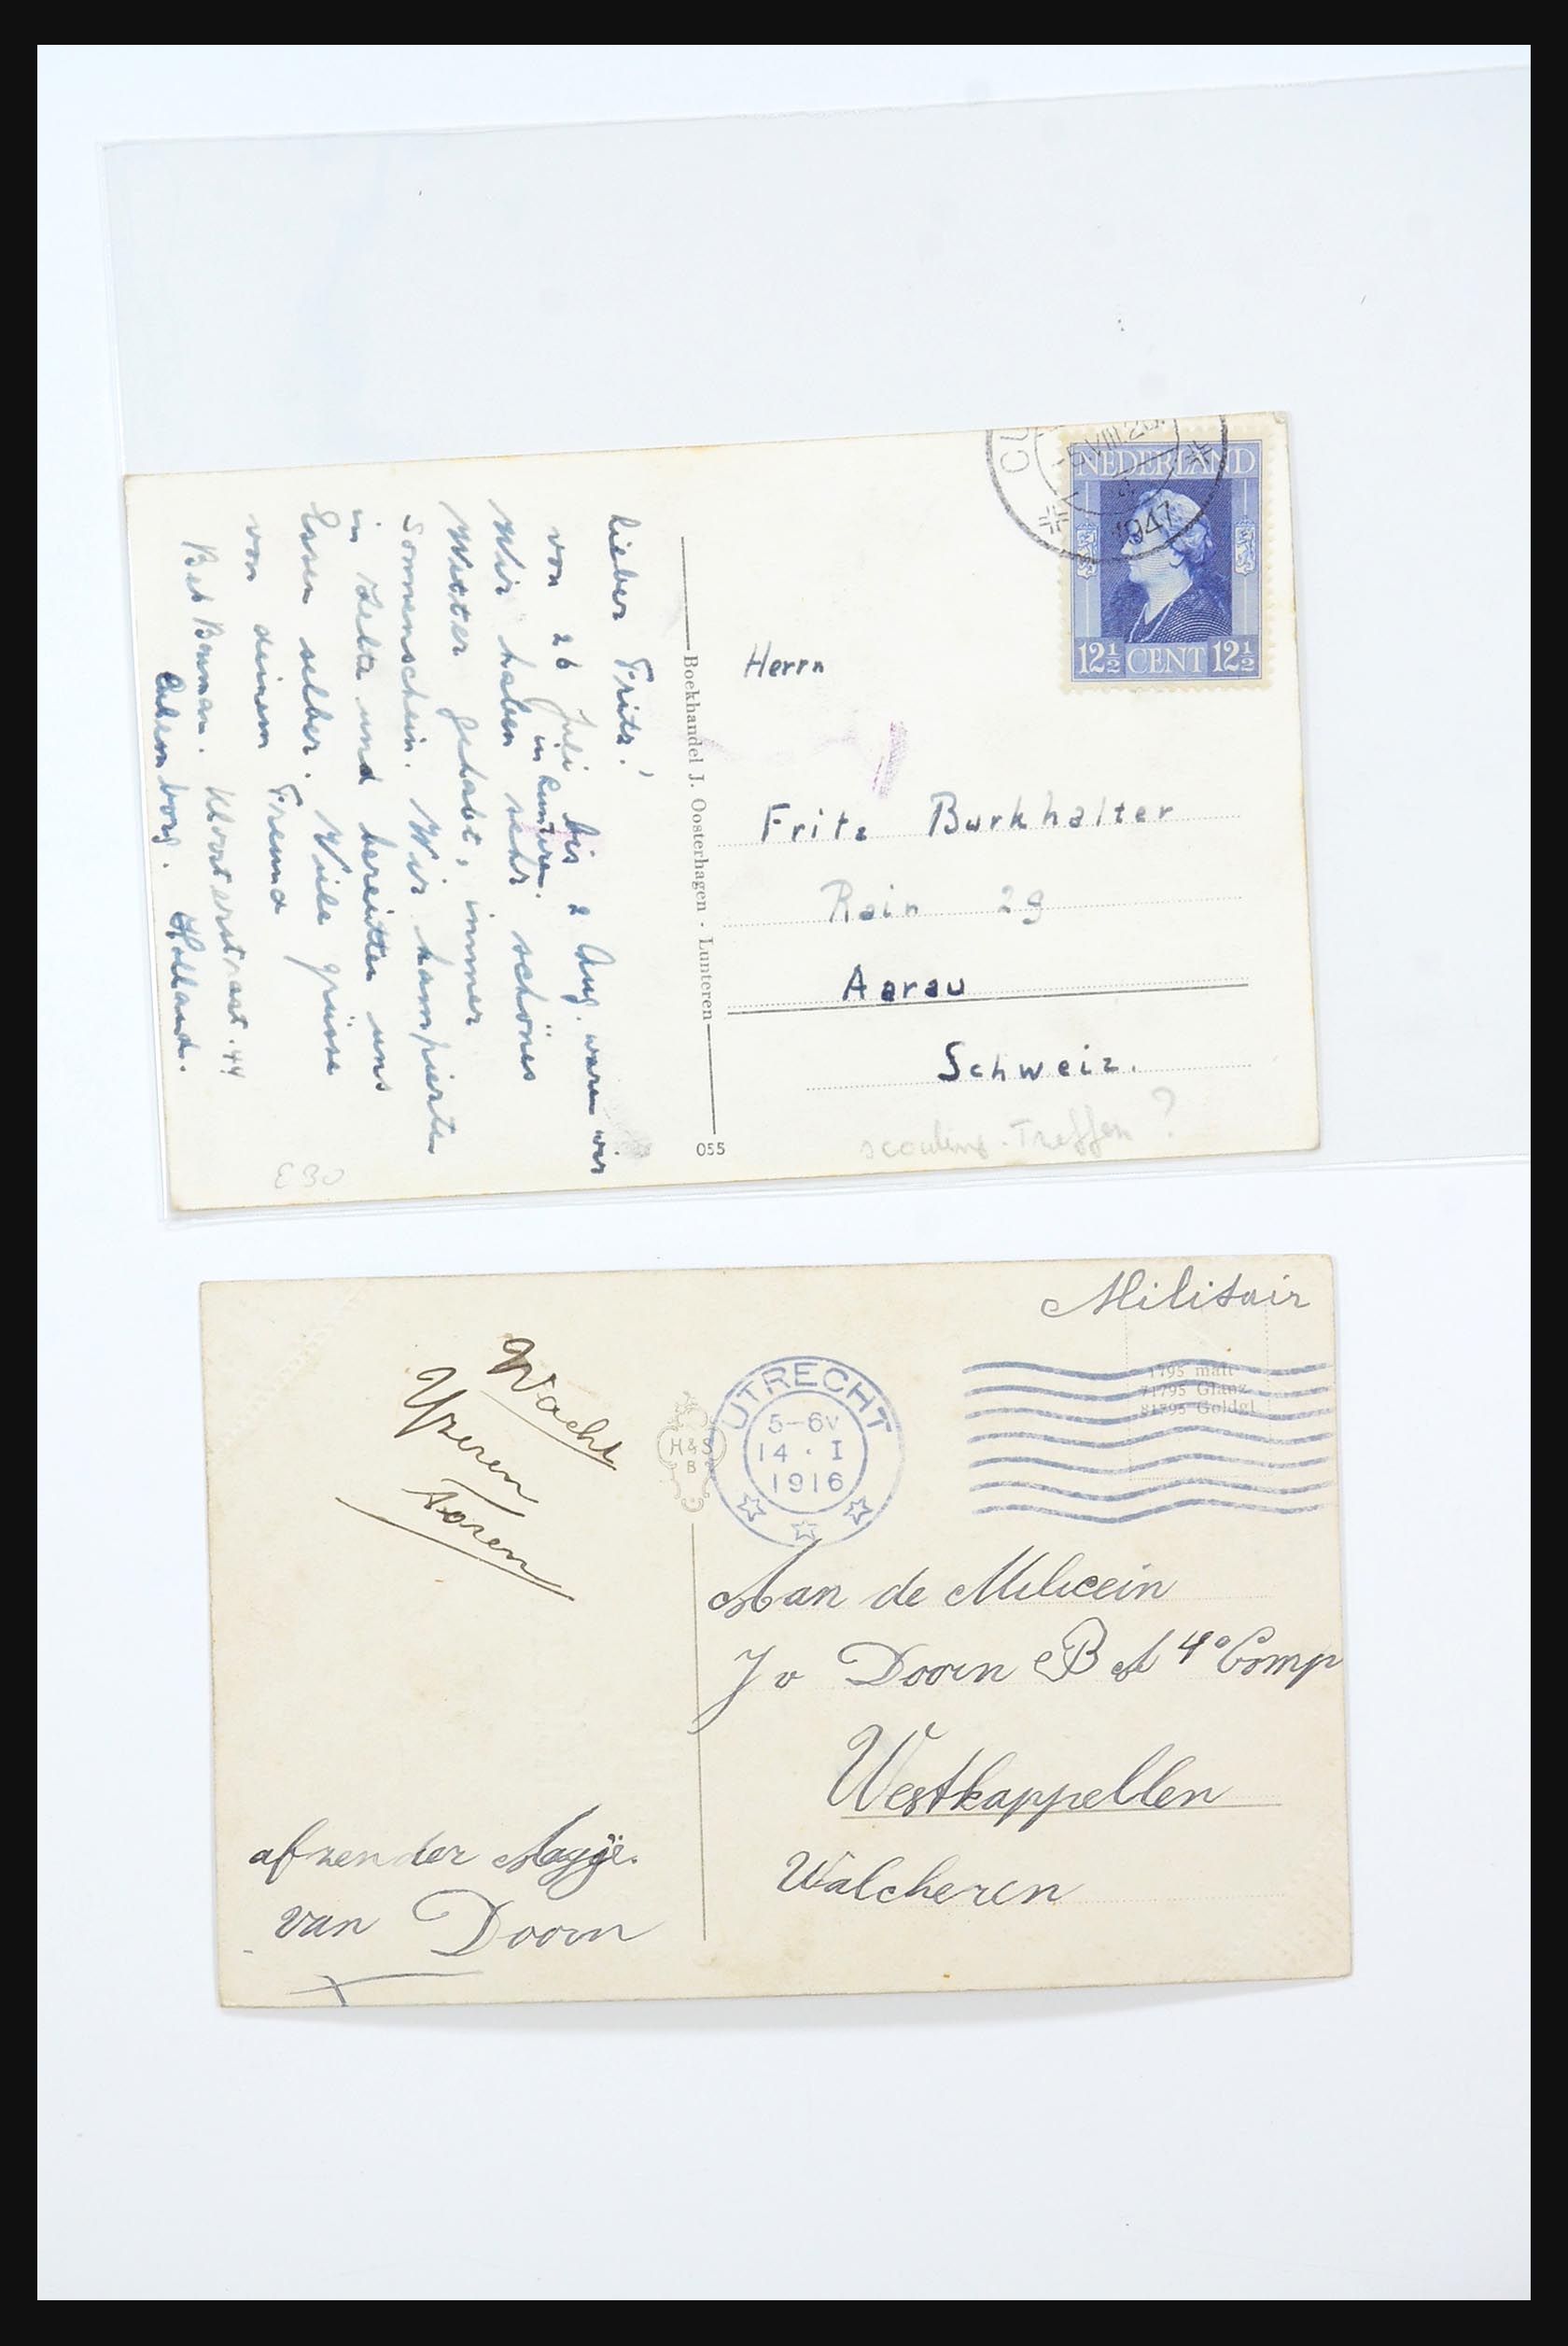 lieber Fritz!
von 26 Juli bis 2 Aug. waren wir
in Lunteren.
Wir haben sehr schönes
Wetter gehabt, immer
Sonnenschein. Wir kampierten
in Zelte und bereitten uns
Essen selber. Viele grüsse
von deinem Freund
Bob Bouman. Kloosterstraat. 44
Culemborg. Holland.
E 30
Boekhandel J. Oosterhagen - Lunteren
055
CU
-6.VIII.20.
1947
NEDERLAND
12½ CENT 12½
Herrn
Fritz Burkhalter
Rain 29
Aarau
Schweiz.
scouting-Treffen?
Militair
1795 matt
71795 Glanz
81795 Goldgl
UTRECHT
5-6V
14 · I
1916
H & S
B
Wacht
Yzeren
Toren
Aan de Milicein
J v Doorn B A 4e Comp
Westkappellen
Walcheren
afzender Aagje.
van Doorn